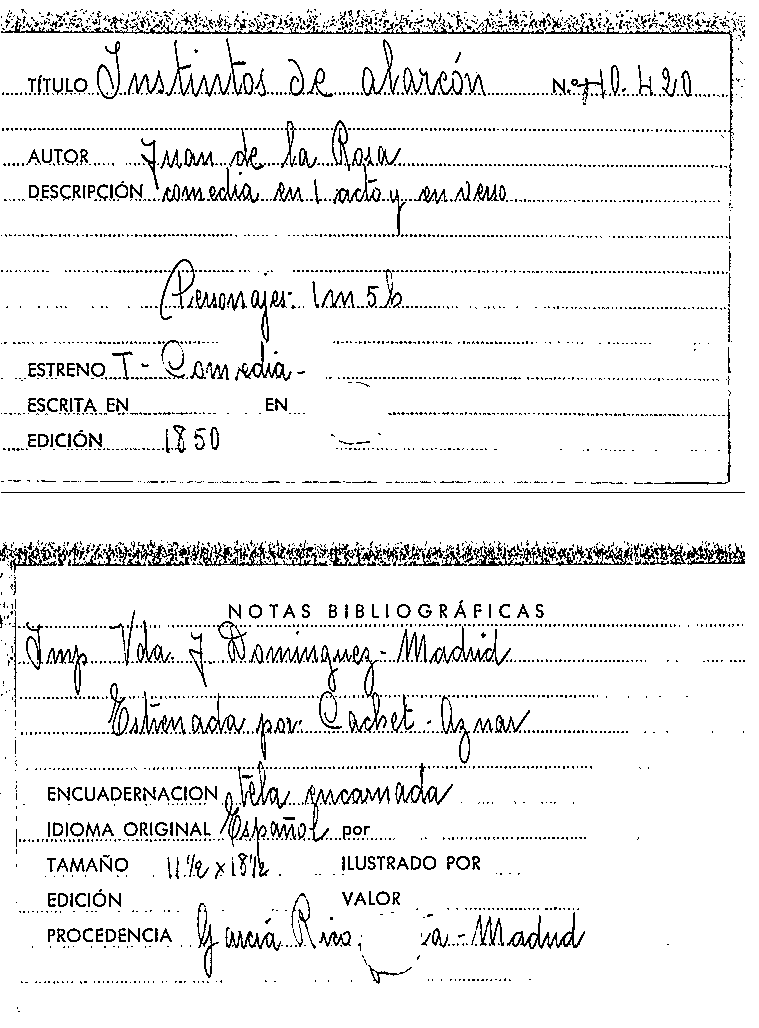 TÍTULO Instintos de alarcón N.º 10.420
AUTOR Juan de la Rosa
DESCRIPCIÓN comedia en 1 acto y en verso
Personajes: 1m 5h
ESTRENO T - Comedia -
ESCRITA EN EN
EDICIÓN 1850
NOTAS BIBLIOGRÁFICAS
Imp Vda. J Dominguez - Madrid
Estrenada por: Cachet - Aznar
ENCUADERNACION tela encarnada
IDIOMA ORIGINAL Español por
TAMAÑO 11 1/2 x 18 1/2 ILUSTRADO POR
EDICIÓN VALOR
PROCEDENCIA García Rico a - Madrid